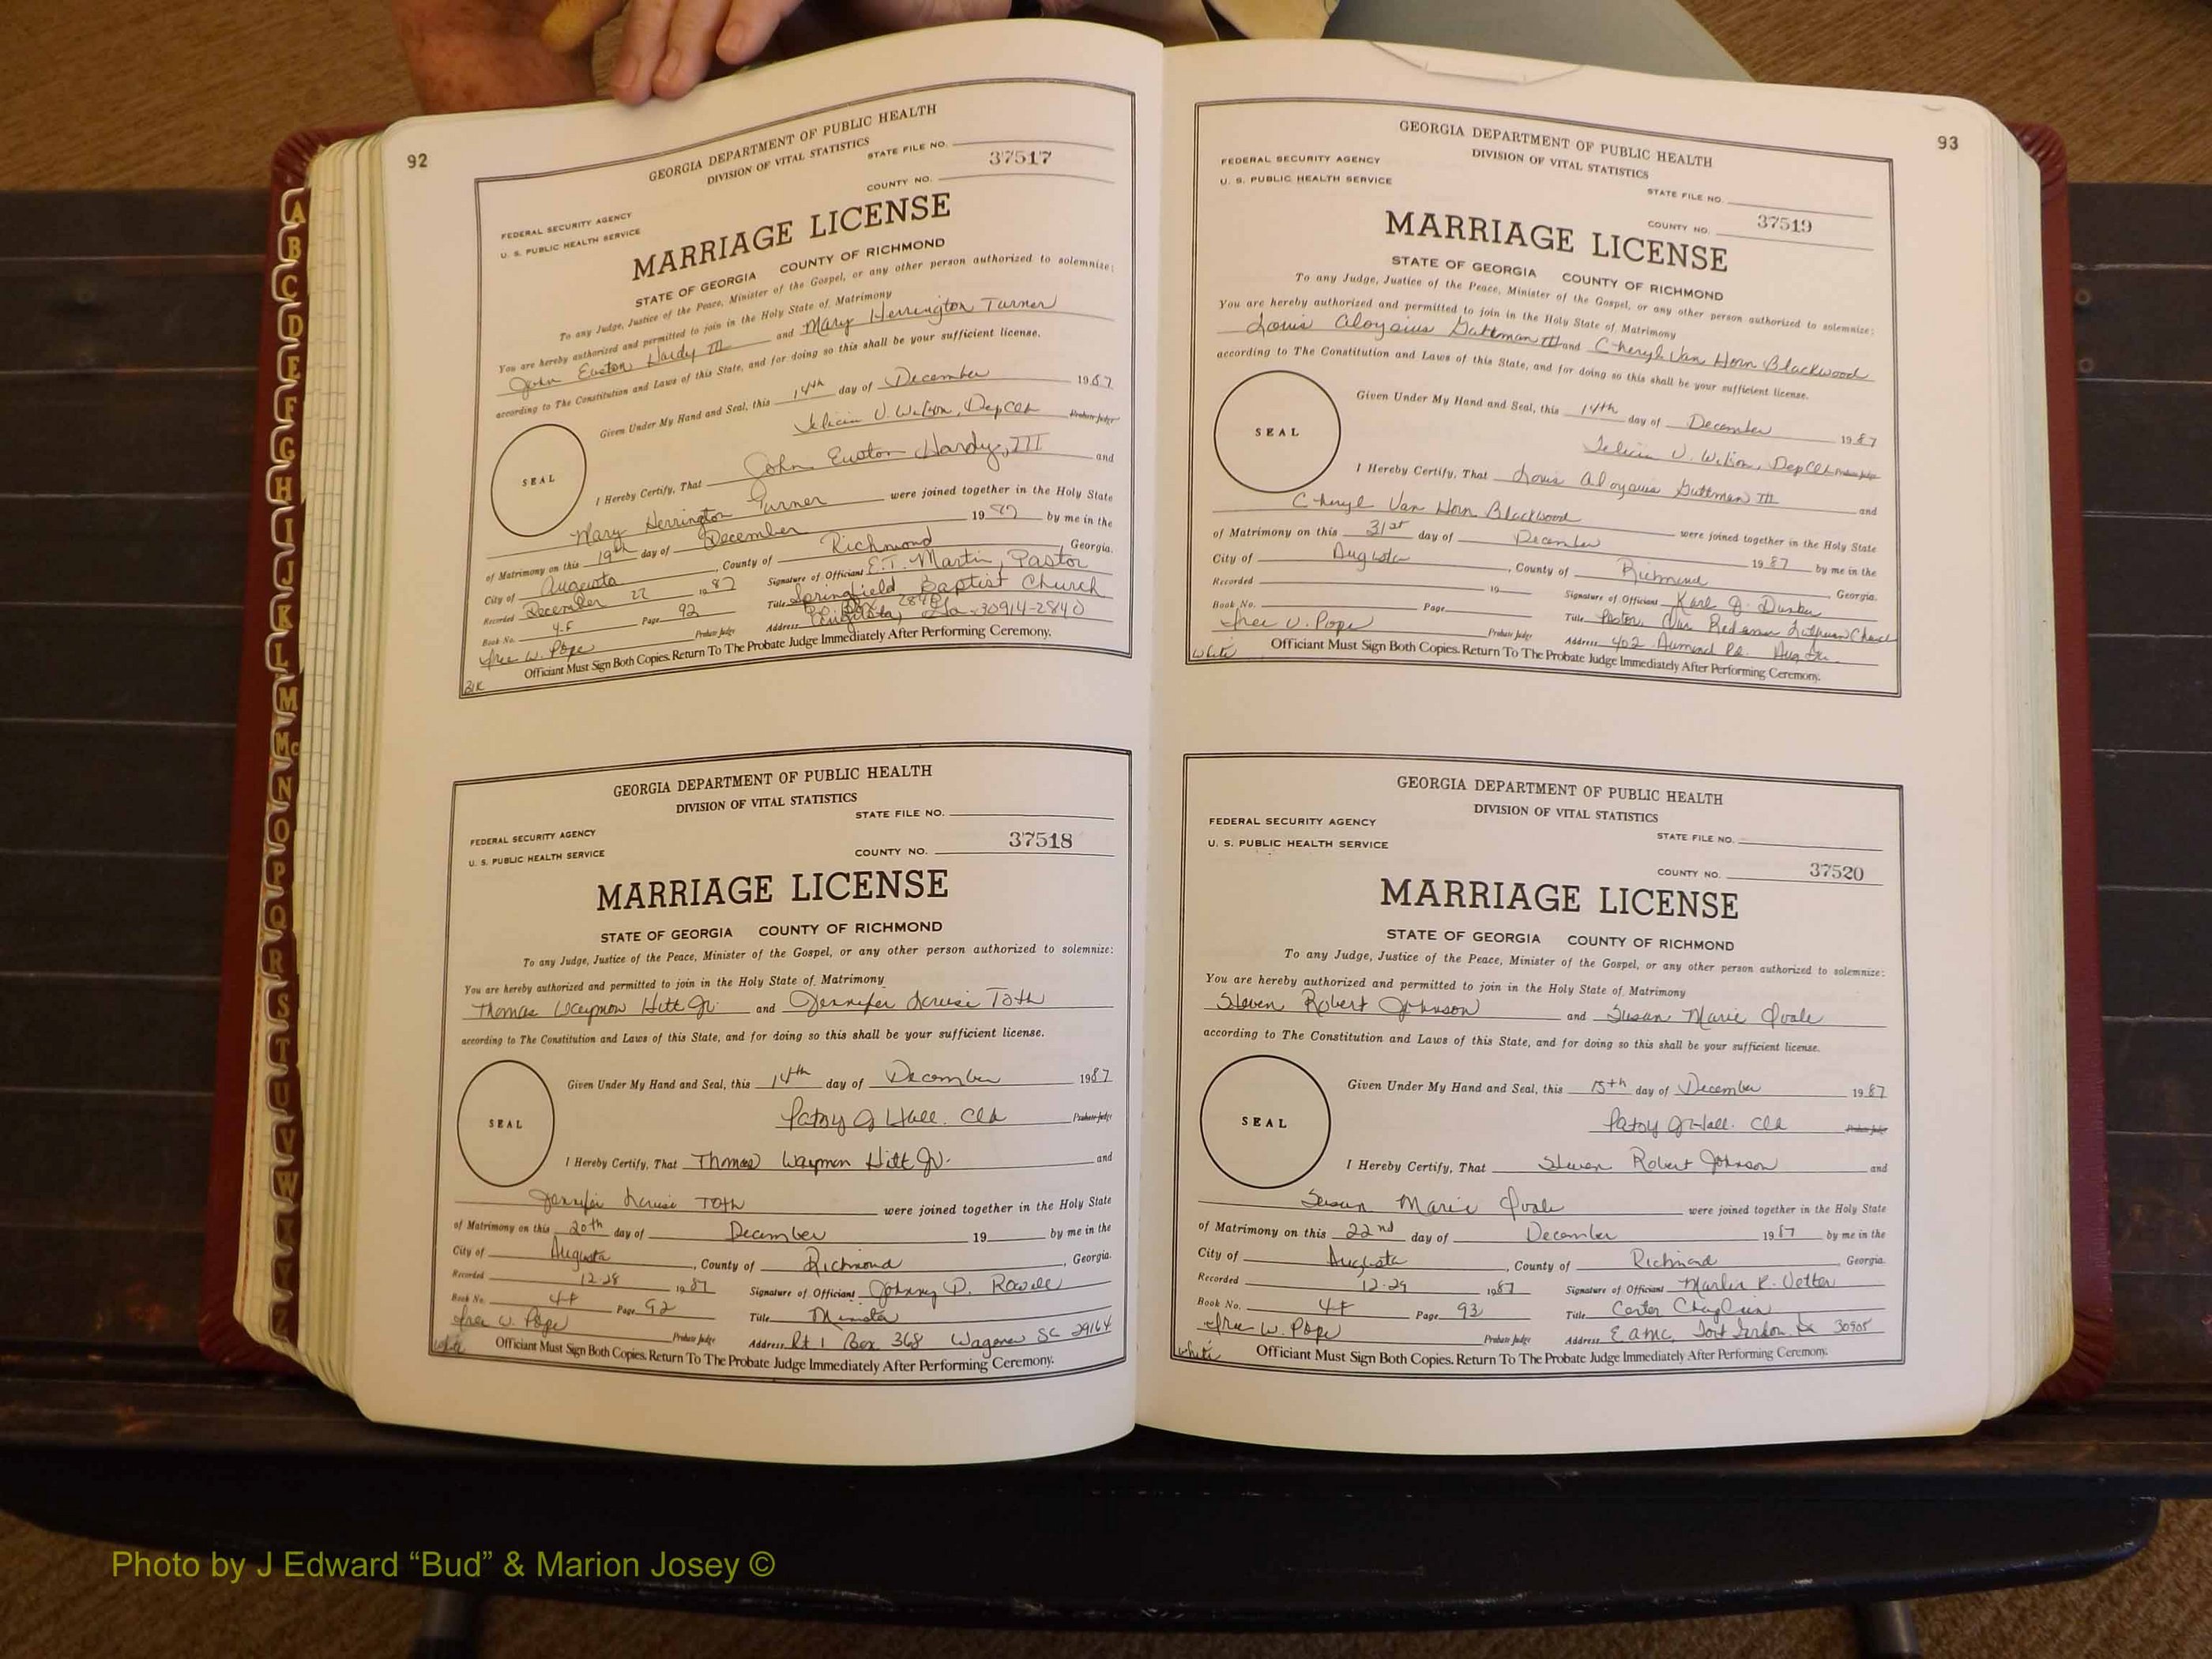 92
GEORGIA DEPARTMENT OF PUBLIC HEALTH
DIVISION OF VITAL STATISTICS
STATE FILE NO.
FEDERAL SECURITY AGENCY
U. S. PUBLIC HEALTH SERVICE
COUNTY NO. 37517
MARRIAGE LICENSE
STATE OF GEORGIA COUNTY OF RICHMOND
To any Judge, Justice of the Peace, Minister of the Gospel, or any other person authorized to solemnize:
You are hereby authorized and permitted to join in the Holy State of Matrimony
John Euston Hardy III and Mary Herrington Turner
according to The Constitution and Laws of this State, and for doing so this shall be your sufficient license.
Given Under My Hand and Seal, this 14th day of December 1987
Felicia V. Wilson, Dep Clk Probate Judge
SEAL
I Hereby Certify, That John Euston Hardy, III and
Mary Herrington Turner were joined together in the Holy State
of Matrimony on this 19th day of December 1987 by me in the
City of Augusta, County of Richmond, Georgia.
Recorded December 22 1987 Signature of Officiant E.T. Martin, Pastor
Book No. 4-F Page 92 Title Springfield Baptist Church
P.O. Box 2840
Probate Judge Address Augusta, Ga 30914-2840
Officiant Must Sign Both Copies. Return To The Probate Judge Immediately After Performing Ceremony.
Blk
GEORGIA DEPARTMENT OF PUBLIC HEALTH
DIVISION OF VITAL STATISTICS
STATE FILE NO.
FEDERAL SECURITY AGENCY
U. S. PUBLIC HEALTH SERVICE
COUNTY NO. 37518
MARRIAGE LICENSE
STATE OF GEORGIA COUNTY OF RICHMOND
To any Judge, Justice of the Peace, Minister of the Gospel, or any other person authorized to solemnize:
You are hereby authorized and permitted to join in the Holy State of Matrimony
Thomas Waymon Hitt Jr. and Jennifer Louise Toth
according to The Constitution and Laws of this State, and for doing so this shall be your sufficient license.
Given Under My Hand and Seal, this 14th day of December 1987
Patsy J Hall. Clk Probate Judge
SEAL
I Hereby Certify, That Thomas Waymon Hitt Jr. and
Jennifer Louise Toth were joined together in the Holy State
of Matrimony on this 20th day of December 19 by me in the
City of Augusta, County of Richmond, Georgia.
Recorded 12-28 1987 Signature of Officiant Johnny D. Rowell
Book No. 4-F Page 92 Title Minister
W. Pope Probate Judge Address Rt 1 Box 368 Wagener SC 29164
white
Officiant Must Sign Both Copies. Return To The Probate Judge Immediately After Performing Ceremony.
93
GEORGIA DEPARTMENT OF PUBLIC HEALTH
DIVISION OF VITAL STATISTICS
FEDERAL SECURITY AGENCY
U. S. PUBLIC HEALTH SERVICE
STATE FILE NO.
COUNTY NO. 37519
MARRIAGE LICENSE
STATE OF GEORGIA COUNTY OF RICHMOND
To any Judge, Justice of the Peace, Minister of the Gospel, or any other person authorized to solemnize:
You are hereby authorized and permitted to join in the Holy State of Matrimony
Louis Aloysius Guttman III and Cheryl Van Horn Blackwood
according to The Constitution and Laws of this State, and for doing so this shall be your sufficient license.
Given Under My Hand and Seal, this 14th day of December 1987
Felicia V. Wilson, Dep Clk Probate Judge
SEAL
I Hereby Certify, That Louis Aloysius Guttman III and
Cheryl Van Horn Blackwood were joined together in the Holy State
of Matrimony on this 31st day of December 1987 by me in the
City of Augusta, County of Richmond, Georgia.
Recorded 19 Signature of Officiant Karl J.
Book No. Page Title Pastor, Our Redeemer Lutheran Church
Probate Judge Address 402 Aumond Rd. Aug Ga.
white
Officiant Must Sign Both Copies. Return To The Probate Judge Immediately After Performing Ceremony.
GEORGIA DEPARTMENT OF PUBLIC HEALTH
DIVISION OF VITAL STATISTICS
FEDERAL SECURITY AGENCY
U. S. PUBLIC HEALTH SERVICE
STATE FILE NO.
COUNTY NO. 37520
MARRIAGE LICENSE
STATE OF GEORGIA COUNTY OF RICHMOND
To any Judge, Justice of the Peace, Minister of the Gospel, or any other person authorized to solemnize:
You are hereby authorized and permitted to join in the Holy State of Matrimony
Steven Robert Johnson and Susan Marie Qvale
according to The Constitution and Laws of this State, and for doing so this shall be your sufficient license.
Given Under My Hand and Seal, this 15th day of December 1987
Patsy J Hall. Clk Probate Judge
SEAL
I Hereby Certify, That Steven Robert Johnson and
Susan Marie Qvale were joined together in the Holy State
of Matrimony on this 22nd day of December 1987 by me in the
City of Augusta, County of Richmond, Georgia.
Recorded 12-29 1987 Signature of Officiant Marlin R. Vetter
Book No. 4-F Page 93 Title Center Chaplain
W. Pope Probate Judge Address EAMC, Fort Gordon, Ga 30905
white
Officiant Must Sign Both Copies. Return To The Probate Judge Immediately After Performing Ceremony.
A
B
C
D
E
F
G
H
I
J
K
L
M
Mc
N
O
P
Q
R
S
T
U
V
W
Photo by J Edward “Bud” & Marion Josey ©